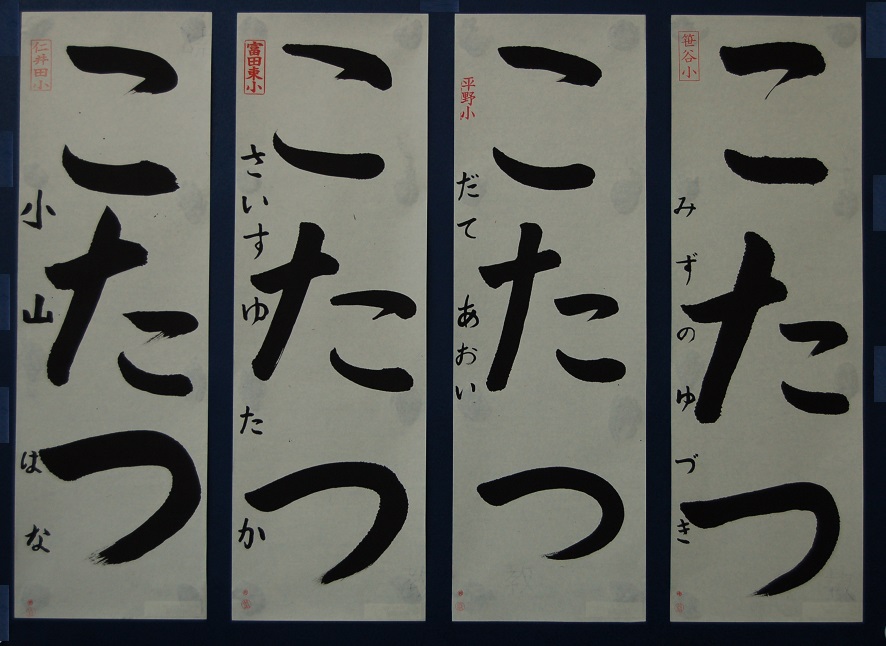 こたつ
笹谷小
みずの ゆづき
こたつ
平野小
だて あおい
こたつ
富田東小
さいす ゆたか
こたつ
仁井田小
小山 はな